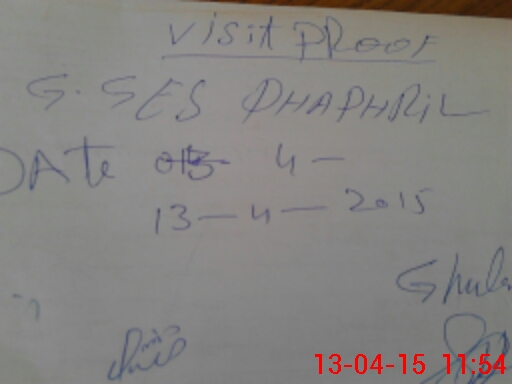 visit PROOF
G. GES DHAPHRiL
DAte 4 —
13 — 4 — 2015
13-04-15 11:54